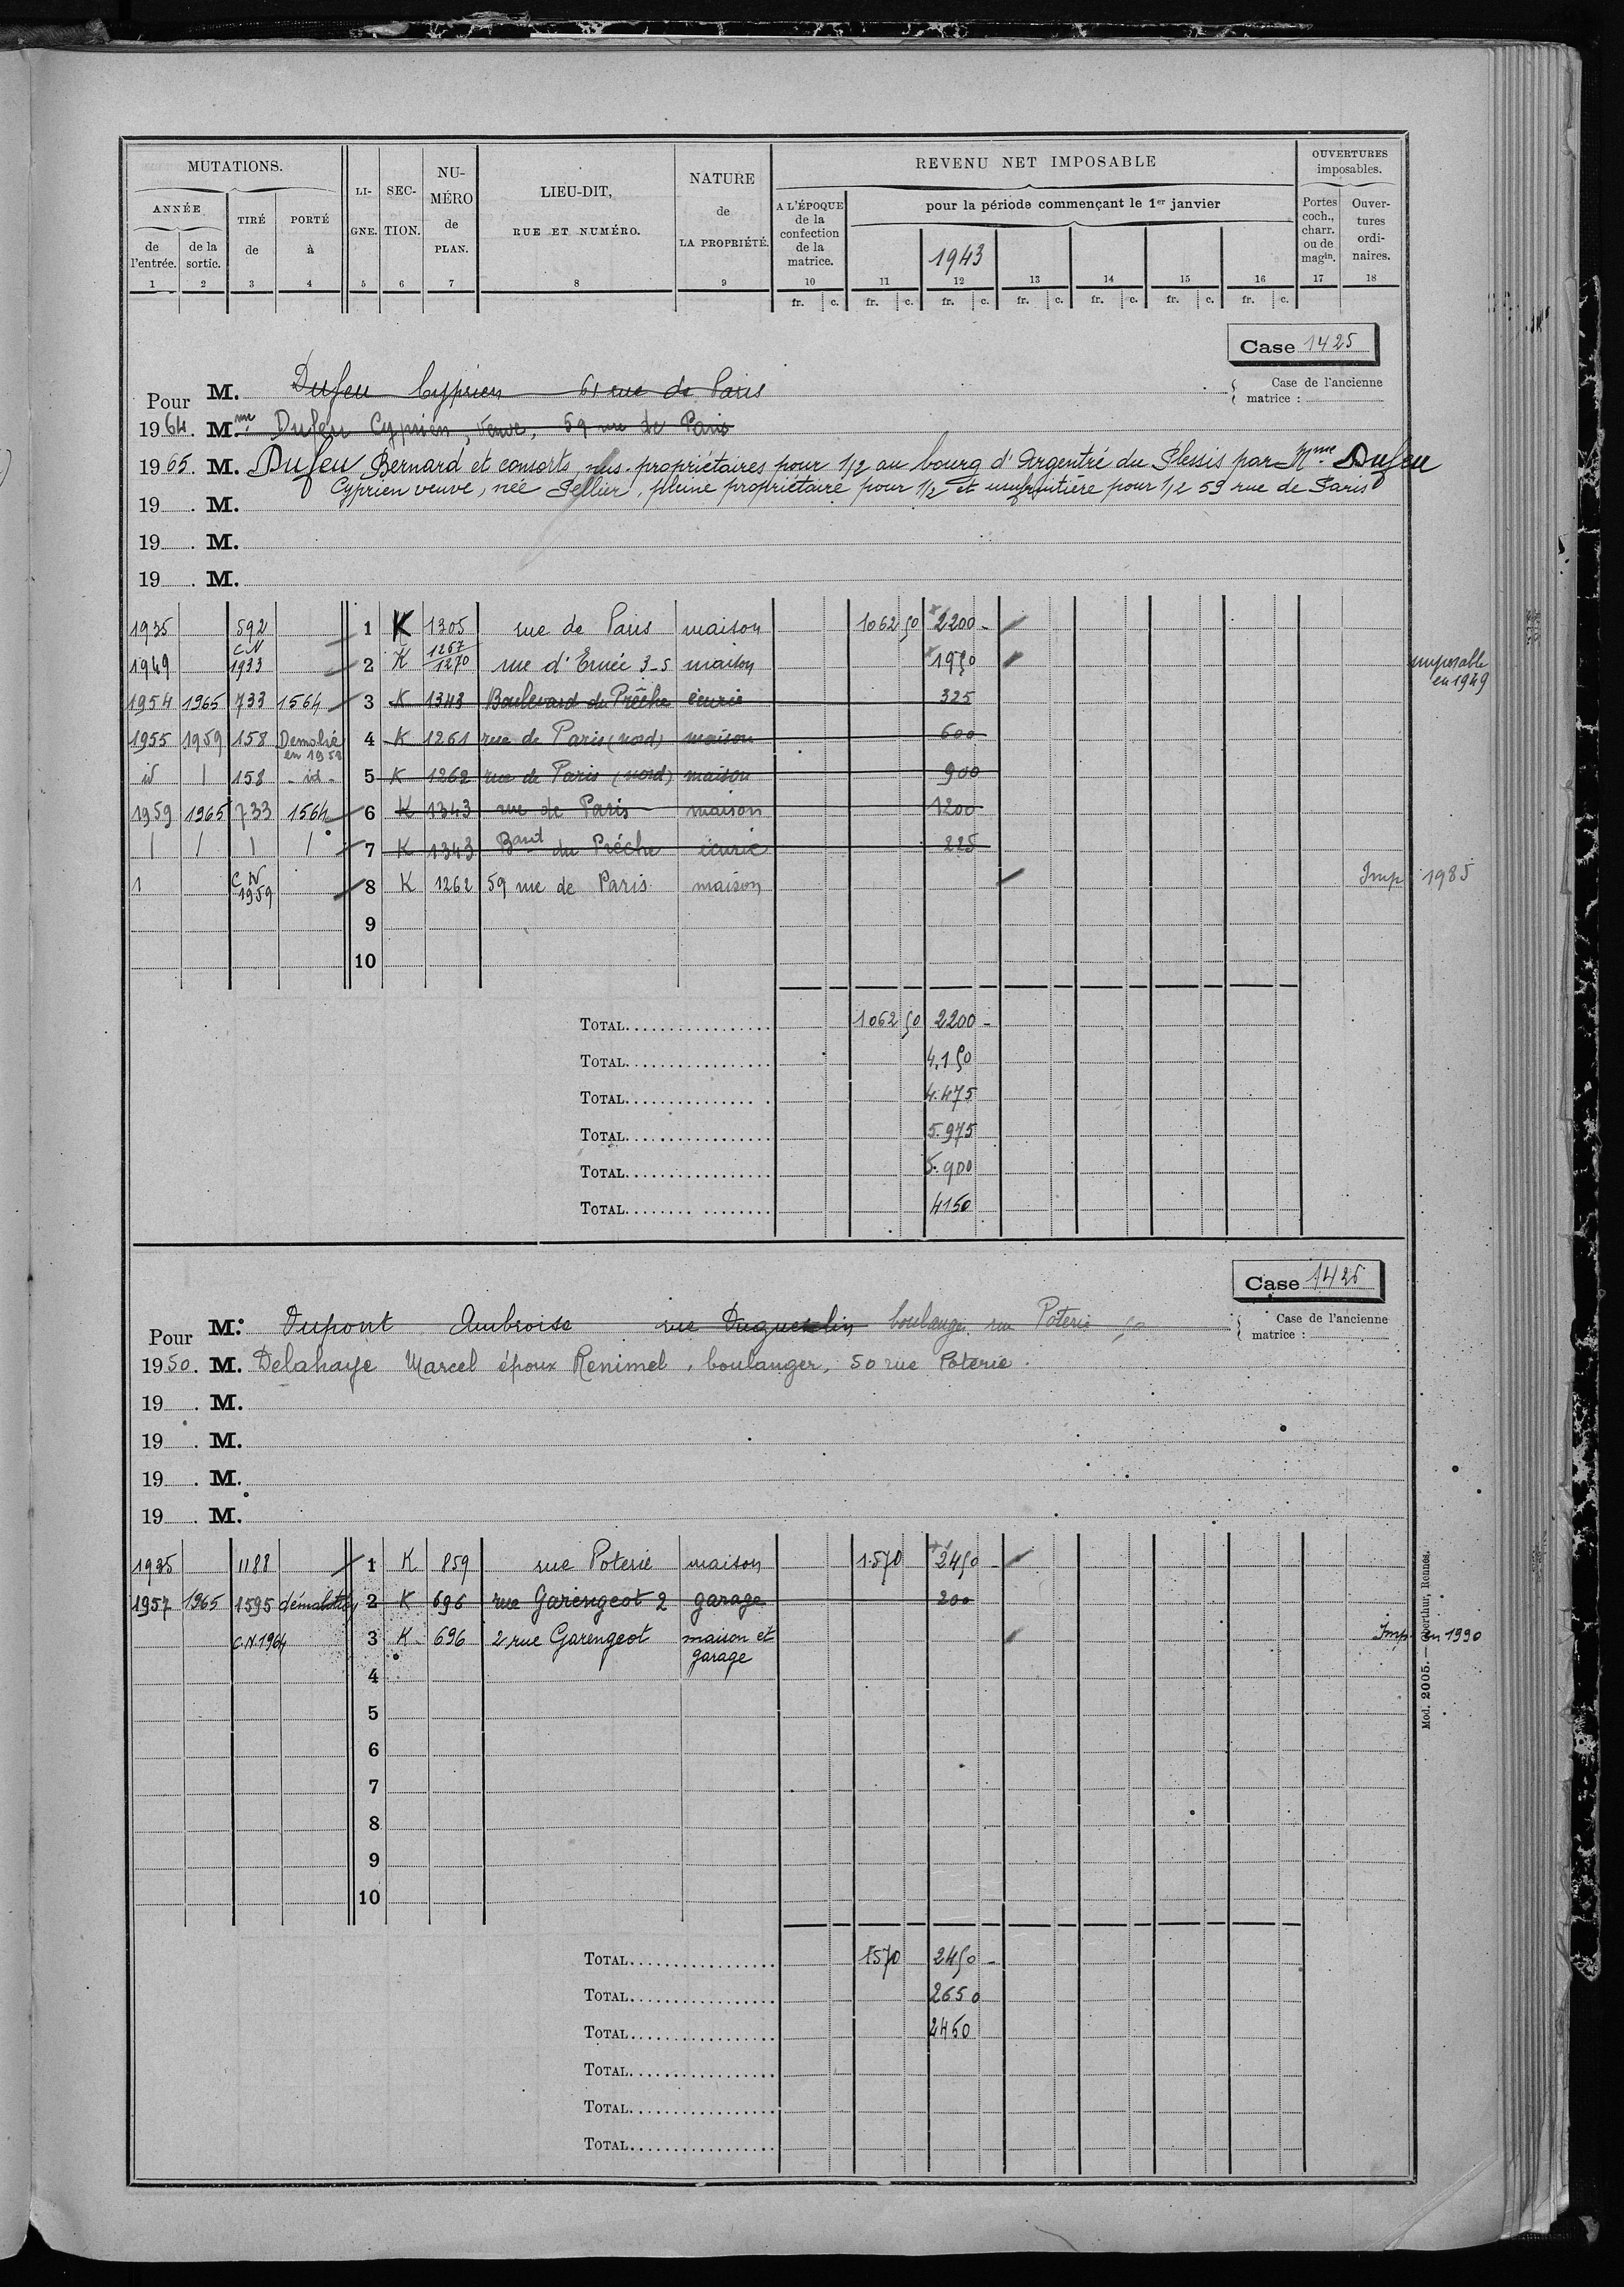 MUTATIONS.
ANNÉE
de l'entrée. 1
de la sortie. 2
TIRÉ de 3
PORTÉ à 4
LI-GNE. 5
SEC-TION. 6
NU-MÉRO de PLAN. 7
LIEU-DIT, RUE ET NUMÉRO. 8
NATURE de LA PROPRIÉTÉ. 9
REVENU NET IMPOSABLE
A L'ÉPOQUE de la confection de la matrice. 10
pour la période commençant le 1er janvier
1943
11 12 13 14 15 16
fr. c. fr. c. fr. c. fr. c. fr. c. fr. c. fr. c.
OUVERTURES imposables.
Portes coch., charr. ou de magin. 17
Ouver-tures ordi-naires. 18
Case 1425
Case de l'ancienne matrice :
Pour M. Dufeu Cyprien 61 rue de Paris
1964. M.me Dufeu Cyprien, veuve, 59 rue de Paris
1965. M. Dufeu Bernard et consorts, nus-propriétaires pour 1/2 au bourg d'Argentré du Plessis par Mme Dufeu
Cyprien veuve, née Sellier, pleine propriétaire pour 1/2 et usufruitière pour 1/2 59 rue de Paris
19 . M.
19 . M.
19 . M.
1935 592 1 K 1305 rue de Paris maison 1062 50 2200 -
1949 CN 1933 2 K 1267/1270 rue d'Ernée 3-5 maison 1950 imposable en 1949
1954 1965 733 1564 3 K 1343 Boulevard du Prêche écurie 325
1955 1959 158 Demolie en 1958 4 K 1261 rue de Paris (nord) maison 600
id | 158 - id - 5 K 1262 rue de Paris (nord) maison 900
1959 1965 733 1564 6 K 1343 rue de Paris maison 1200
| | | | 7 K 1343 Bard du Prêche écurie 225
1 CN 1959 8 K 1262 59 rue de Paris maison Imp 1985
9
10
TOTAL 1062 50 2200 -
TOTAL 4.150
TOTAL 4.475
TOTAL 5.975
TOTAL 5.900
TOTAL 4150
Case 1426
Case de l'ancienne matrice :
Pour M. Dupont Ambroise rue Duguesclin boulanger rue Poterie 50
1950. M. Delahaye Marcel époux Renimel, boulanger, 50 rue Poterie.
19 . M.
19 . M.
19 . M.
19 . M.
1935 1188 1 K 859 rue Poterie maison 1.570 2450 -
1957 1965 1595 démolition 2 K 696 rue Garengeot 2 garage 200
C.N. 1964 3 K 696 2 rue Garengeot maison et garage Imp. en 1990
4
5
6
7
8
9
10
TOTAL 1570 2450 -
TOTAL 2650
TOTAL 2450
TOTAL
TOTAL
TOTAL
Mod. 2005. — Oberthur, Rennes.